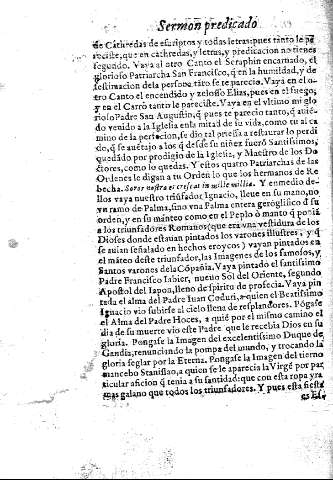 Sermon predicado
de Cathredas de escriptos y todas letras: pues tanto le pa
reciste, que en cathredas, y letras, y predicacion no tienes
segundo. Vaya al otro Canto el Seraphin encarnado, el
glorioso Patriarcha San Francisco, q̃ en la humildad, y de
sestimacion dela persona tãto se te parecio. Vaya en el o-
tro Canto el encendido y zelosso Elias, pues en el fuego,
y en el Carro tanto le pareciste. Vaya en el vltimo mi glo
rioso Padre San Augustin, q̃ pues te parecio tanto, q̃ auiẽ-
do venido a la Iglesia enla mitad de su vida, como tu al ca
mino de la perfecion, se dio tal priessa a restaurar lo perdi
do, q̃ se auẽtajo a los q̃ desde su niñez fuerõ Santissimos,
quedãdo por prodigio de la Iglesia, y Maestro de los Do
ctores, como lo quedas. Y estos quatro Patriarchas de las
Ordenes le digan a tu Orden lo que los hermanos de Re
becha. Soror nostra es crescas in mille millia. Y enmedio de-
llos vaya nuestro triũfador Ignacio, lleue en su mano, no
vn ramo de Palma, sino vna Palma entera geroglifico d̃ su
orden, y en su mãnteo como en el Peplo ò manto q̃ poniã
a los triunfadores Romanos (que era vna vestidura de los
Dioses donde estauan pintados los varones illustres, y q̃
se auian señalado en hechos eroycos) vayan pintados en
el mãteo deste triunfador, las Imagenes de los famosos, y
Santos varones dela Cõpañia. Vaya pintado el santissimo
Padre Francisco Iabier, nueuo Sol del Oriente, segundo
Apostol del Iapon, lleno de spiritu de profecia. Vaya pin
tada el alma del Padre Iuan Coduri, a quien el Beatissimo
Ignacio vio subirse al cielo llena de resplandores. Põgase
el Alma del Padre Hoces, a quiẽ por el mismo camino el
dia de su muerte vio este Padre que le recebia Dios en su
gloria. Pongase la Imagen del excelentissimo Duque de
Gandia, renunciando la pompa del mundo, y trocando la
gloria seglar por la Eterna. Pongase la Imagen del tierno
mancebo Stanislao, a quien se le aparecio la Virgẽ por par
ticular aficion q̃ tenia a su santidad: que con esta ropa yra
mas galano que todos los triunfadores. Y pues esta fiesta
es Es-